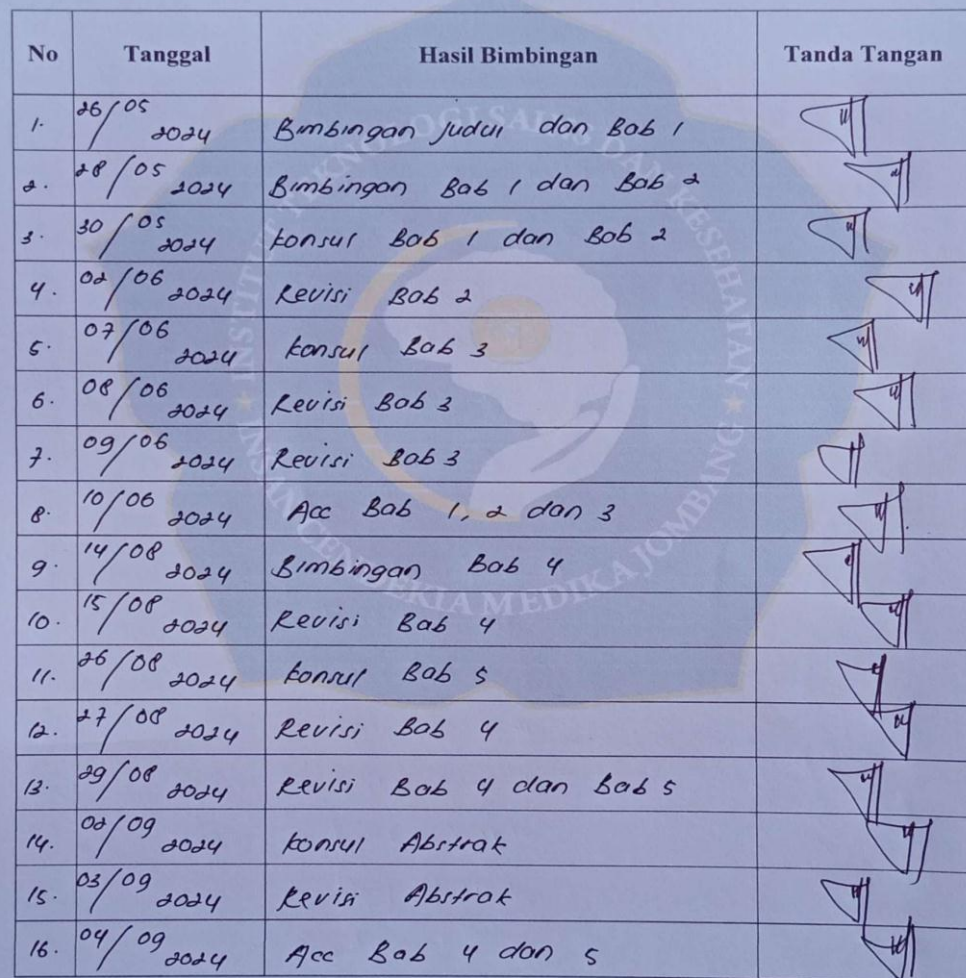 No Tanggal Hasil Bimbingan Tanda Tangan
1. 26/05 2024 Bimbingan Judul dan Bab 1
2. 28/05 2024 Bimbingan Bab 1 dan Bab 2
3. 30/05 2024 konsul Bab 1 dan Bab 2
4. 02/06 2024 Revisi Bab 2
5. 07/06 2024 konsul Bab 3
6. 08/06 2024 Revisi Bab 3
7. 09/06 2024 Revisi Bab 3
8. 10/06 2024 Acc Bab 1, 2 dan 3
9. 14/08 2024 Bimbingan Bab 4
10. 15/08 2024 Revisi Bab 4
11. 26/08 2024 konsul Bab 5
12. 27/08 2024 Revisi Bab 4
13. 29/08 2024 Revisi Bab 4 dan Bab 5
14. 02/09 2024 konsul Abstrak
15. 03/09 2024 Revisi Abstrak
16. 04/09 2024 Acc Bab 4 dan 5
INSTITUT TEKNOLOGI SAINS DAN KESEHATAN
INSAN CENDEKIA MEDIKA JOMBANG